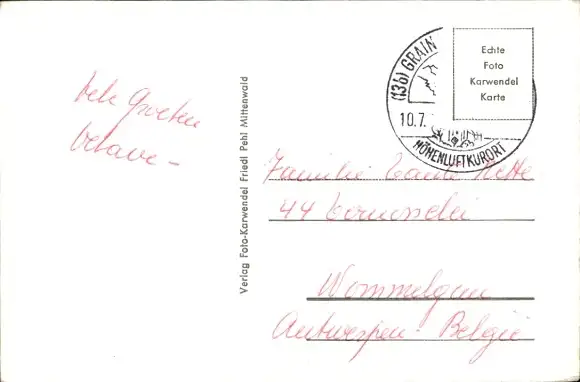 Echte
Foto
Karwendel
Karte
(13b) GRAIN
10.7.
HÖHENLUFTKURORT
Groeten
Octave -
Verlag Foto-Karwendel Friedl Pehl Mittenwald
Familie
44
Wommelgem
Antwerpen - Belgie